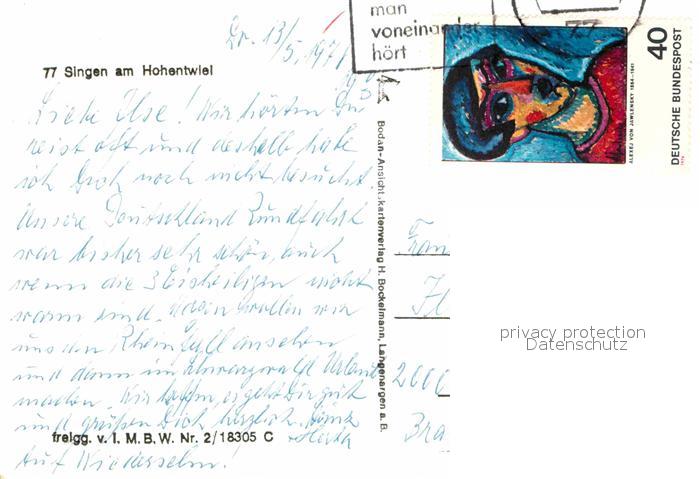 man
voneinander
hört
77
40
DEUTSCHE BUNDESPOST
ALEXEJ VON JAWLENSKY 1864-1941
77 Singen am Hohentwiel
Liebe Ilse! Wir hörten Du
reist oft und deshalb habe
ich Dich noch nicht besucht.
Unsere Deutschland Rundfahrt
war bisher sehr schön, auch
wenn die 3 Eisheiligen nicht
warm sind. wollen wir
uns den Rheinfall ansehen
und dann im Schwarzwald Urlaub
machen. Wir hoffen, es geht Dir gut
und grüßen Dich herzlich
Auf Wiedersehn!
freigg. v. I. M. B. W. Nr. 2/18305 C
Bodan-Ansichtskartenverlag H. Bockelmann, Langenargen a. B.
Frau
2000
Bra
privacy protection
Datenschutz